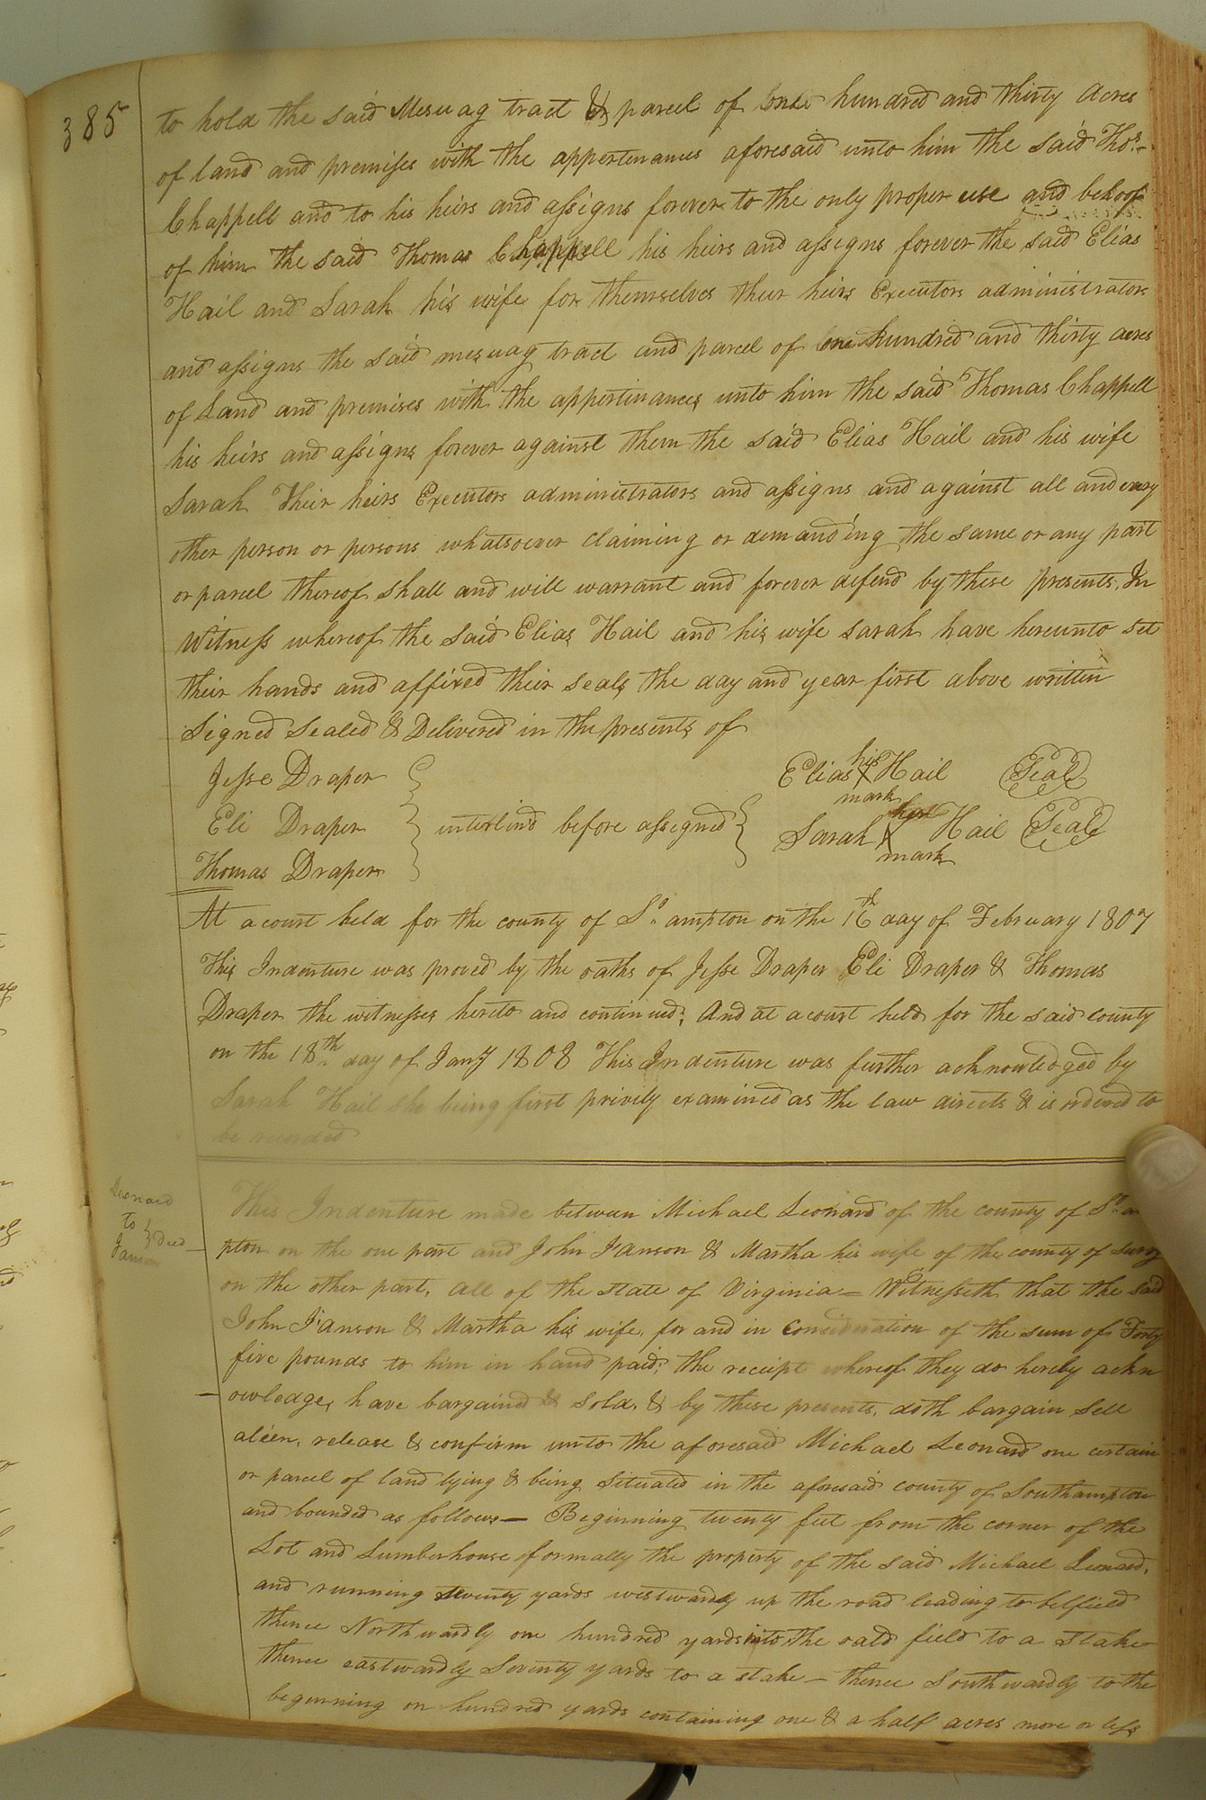 385
to hold the said Mesuag tract & parcel of one hundred and thirty Acres
of land and premises with the appertenances aforesaid unto him the said Thos.
Chappell and to his heirs and assigns forever to the only proper use and behoof
of him the said Thomas Chappell his heirs and assigns forever the said Elias
Hail and Sarah his wife for themselves their heirs Executors administrators
and assigns the said mesuag tract and parcel of one hundred and thirty acres
of Land and premises with the appertinances unto him the said Thomas Chappell
his heirs and assigns forever against them the said Elias Hail and his wife
Sarah Their heirs Executors administrators and assigns and against all and every
other person or persons whatsoever claiming or demanding the same or any part
or parcel thereof shall and will warrant and forever defend by these presents. In
Witness whereof the said Elias Hail and his wife sarah have hereunto set
their hands and affixed their seals the day and year first above written
Signed Sealed & Delivered in the presents of
Jesse Draper
Eli Draper
Thomas Draper
interlind before assigned
Elias his X mark Hail Seal
Sarah her X mark Hail Seal
At a court held for the county of So. ampton on the 16th day of February 1807
This Indenture was proved by the oaths of Jesse Draper Eli Draper & Thomas
Draper the witnesses hereto and continued; And at a court held for the said county
on the 18th day of Jany 1808 This Indenture was further acknowledged by
Sarah Hail she being first privily examined as the law directs & is ordered to
be recorded
Leonard
to } Deed
Janson
This Indenture made between Michael Leonard of the county of So. am
pton on the one part and John Janson & Martha his wife of the county of Surry
on the other part, all of the state of Virginia = Witnesseth that the said
John Janson & Martha his wife, for and in Consideration of the sum of Forty
five pounds to him in hand paid; the receipt whereof they do hereby ackn
owledge, have bargained & sold, & by these presents, doth bargain sell
alien, release & confirm unto the aforesaid Michael Leonard one certain
or parcel of land lying & being situated in the aforesaid county of Southampton
and bounded as follows — Beginning twenty feet from the corner of the
Lot and Lumberhouse formally the property of the said Michael Leonard,
and running seventy yards westwardly up the road leading to belfield
thence Northwardly one hundred yards into the oald field to a Stake
thence eastwardly Seventy yards to a stake — thence Southwardly to the
beginning on hundred yards containing one & a half acres more or less